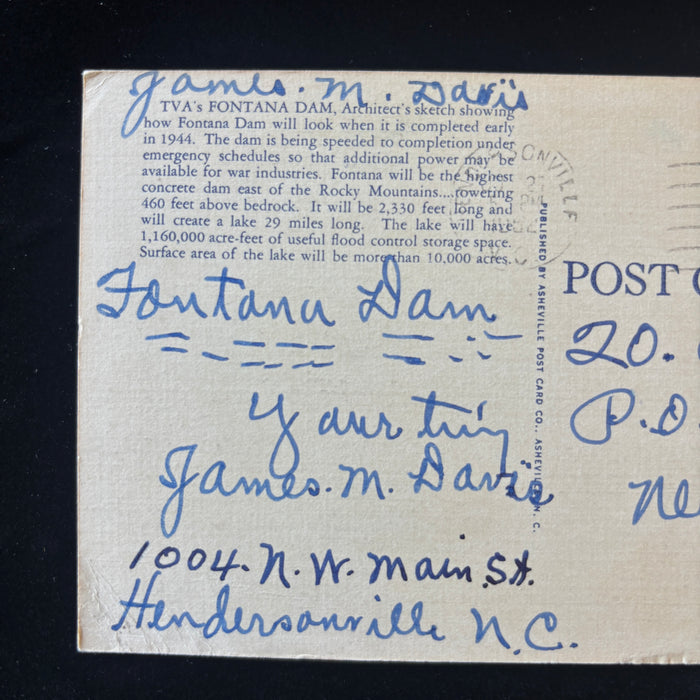 James. M. Davis
TVA's FONTANA DAM, Architect's sketch showing
how Fontana Dam will look when it is completed early
in 1944. The dam is being speeded to completion under
emergency schedules so that additional power may be
available for war industries. Fontana will be the highest
concrete dam east of the Rocky Mountains....towering
460 feet above bedrock. It will be 2,330 feet long and
will create a lake 29 miles long. The lake will have
1,160,000 acre-feet of useful flood control storage space.
Surface area of the lake will be more than 10,000 acres.
Fontana Dam
Your
James. M. Davis
1004. N. W. Main. St.
Hendersonville N.C.
PUBLISHED BY ASHEVILLE POST CARD CO., ASHEVILLE, N. C.
POST
20.
P.O.